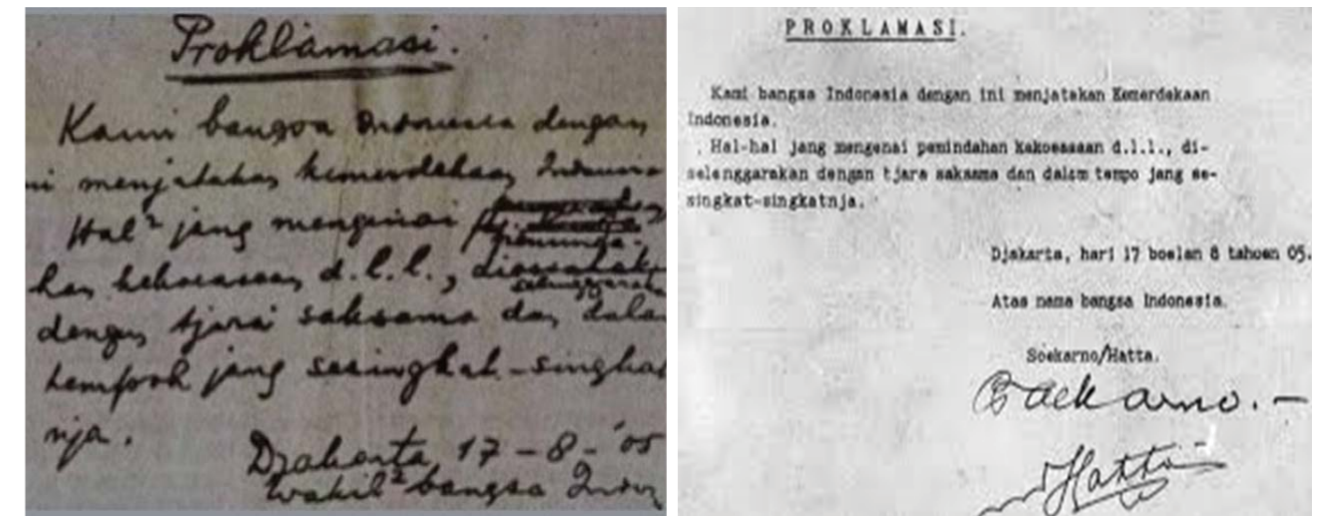 Proklamasi.
Kami bangsa Indonesia dengan
ni menjatakan kemerdekaan Indonesia
Hal² jang mengenai
han kekoeasaan d.l.l., dioesahak
selenggarak
dengan tjara saksama dan dala
tempoh jang sesingkat-singkat
nja.
Djakarta 17 - 8 - '05
Wakil² bangsa Indon
PROKLAMASI.
Kami bangsa Indonesia dengan ini menjatakan Kemerdekaan
Indonesia.
Hal-hal jang mengenai pemindahan kekoeasaan d.l.l., di-
selenggarakan dengan tjara saksama dan dalam tempo jang se-
singkat-singkatnja.
Djakarta, hari 17 boelan 8 tahoen 05.
Atas nama bangsa Indonesia.
Soekarno/Hatta.
Soekarno.-
Hatta